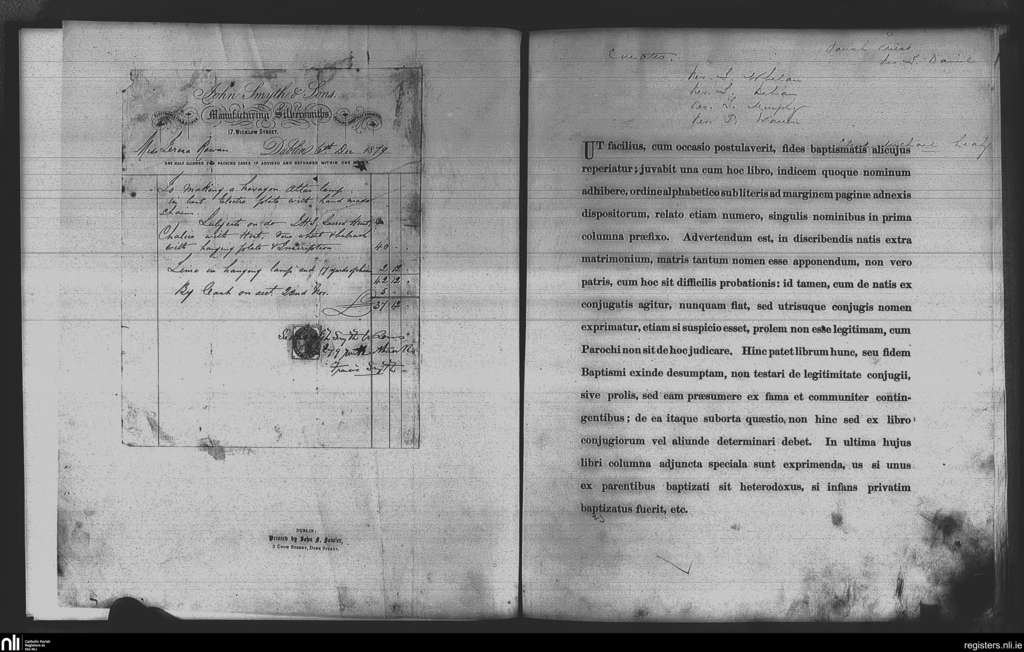 John Smyth & Sons
Manufacturing Silversmiths
17, WICKLOW STREET,
Miss Teresa Rowan Dublin 6th Dec 1879
ONE HALF ALLOWED FOR PACKING CASES IF ADVISED AND RETURNED WITHIN ONE
To making a hexagon Altar lamp
in best Electro plate with hand made
chain
Subjects on do
Chalice with Host,
with hanging plate & Inscription 40 - -
hanging lamp and 17 yards of 2 12
42 12
By Cash on acct 22nd Nov. 5 -
£ 37 12
DUBLIN:
Printed by John F. Fowler,
3 CROW STREET, DAME STREET.
Curates.
Rev. T. Whelan
Rev.
Rev. T. Murphy
Rev.
UT facilius, cum occasio postulaverit, fides baptismatis alicujus
reperiatur; juvabit una cum hoc libro, indicem quoque nominum
adhibere, ordine alphabetico sub literis ad marginem paginæ adnexis
dispositorum, relato etiam numero, singulis nominibus in prima
columna præfixo. Advertendum est, in discribendis natis extra
matrimonium, matris tantum nomen esse apponendum, non vero
patris, cum hoc sit difficilis probationis: id tamen, cum de natis ex
conjugatis agitur, nunquam fiat, sed utriusque conjugis nomen
exprimatur, etiam si suspicio esset, prolem non esse legitimam, cum
Parochi non sit de hoc judicare. Hinc patet librum hunc, seu fidem
Baptismi exinde desumptam, non testari de legitimitate conjugii,
sive prolis, sed eam præsumere ex fama et communiter contin-
gentibus; de ea itaque suborta quæstio, non hinc sed ex libro
conjugiorum vel aliunde determinari debet. In ultima hujus
libri columna adjuncta speciala sunt exprimenda, us si unus
ex parentibus baptizati sit heterodoxus, si infans privatim
baptizatus fuerit, etc.
nli
Catholic Parish
Registers at
the NLI
registers.nli.ie